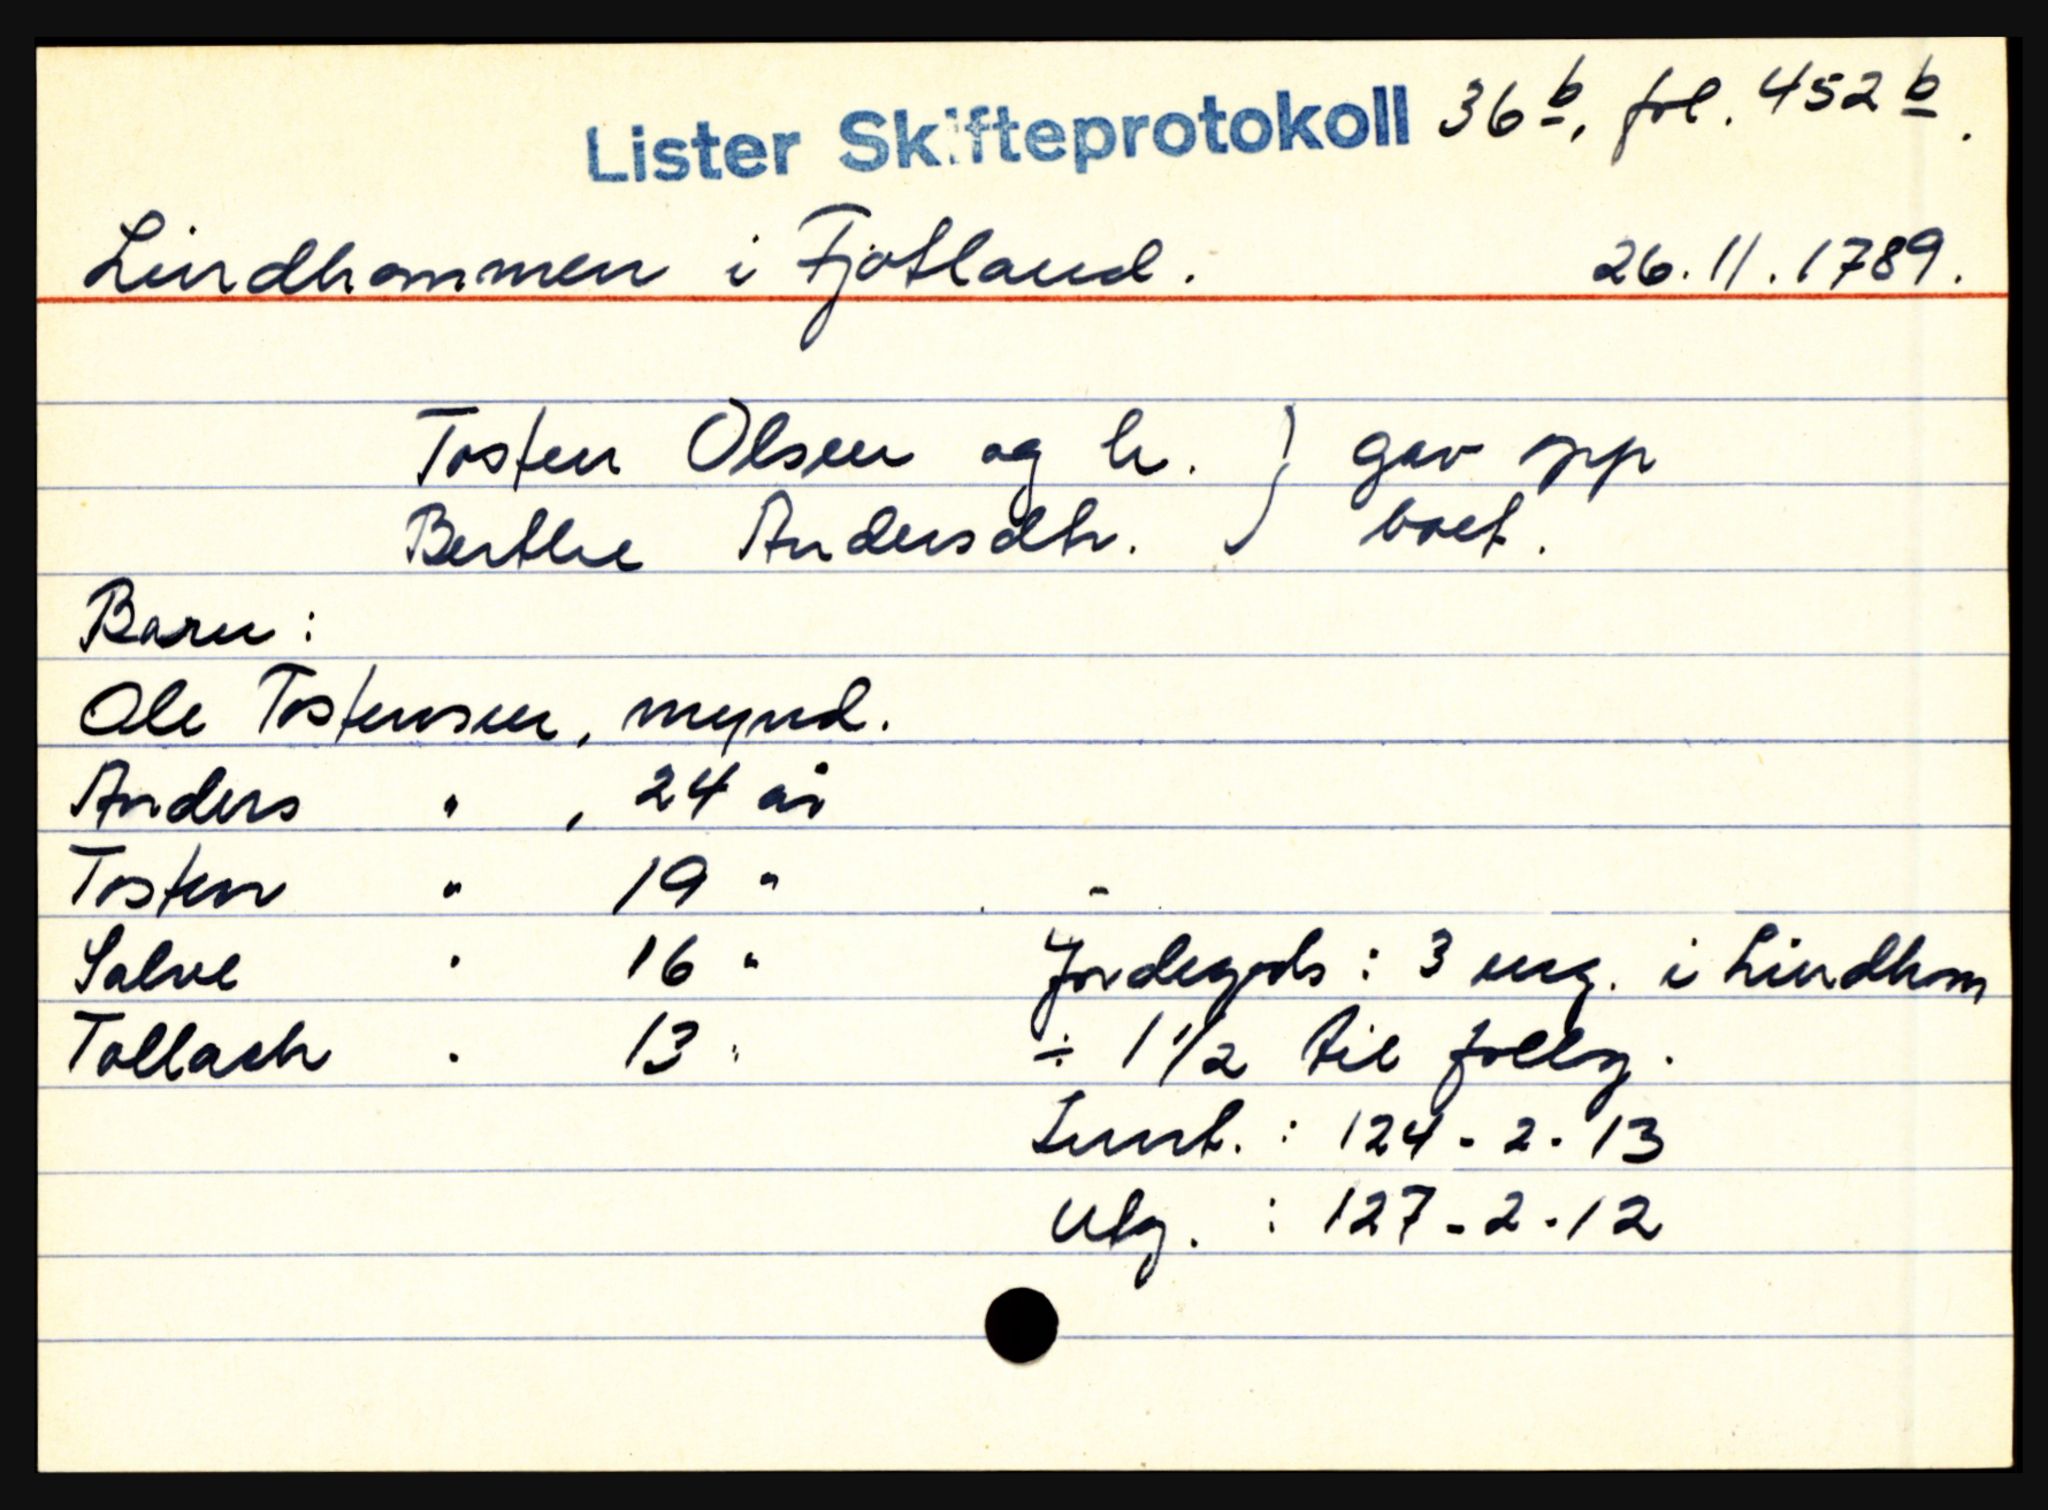 Lister Skifteprotokoll 36 b, fol. 452 b.
Lindhommen i Fjotland. 26.11.1789.
Tosten Olsen og h. } gav opp
Berthe Andersdtr. } boet.
Barn:
Ole Tostensen, mynd.
Anders " , 24 år
Tosten " 19 "
Salve " 16 " Jordegods: 3 eng. i Lindhom
Tollach " 13 " ÷ 1 1/2 til follog.
: 124-2-13
Utg. : 127-2-12